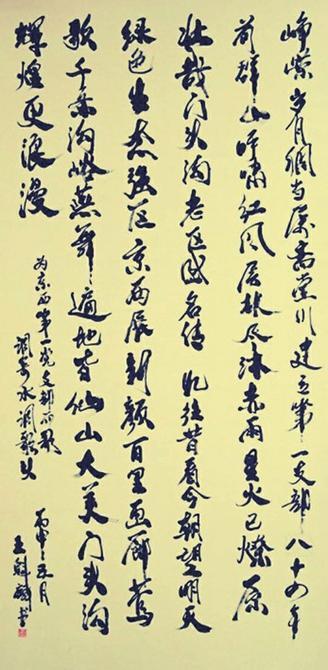 峥嵘岁月稠当属斋堂川建立第一支部八十四年
前群山呼啸红风层林尽沐赤雨星火已燎原
壮哉门头沟老区盛名传 忆往昔看今朝望明天
绿色生态强区京西展新颜百里画廊莺
歌千条沟峪燕舞遍地皆仙山大美门头沟
辉煌更浪漫
为京西第一党支部而歌
调寄水调歌头
丙申五月
王书